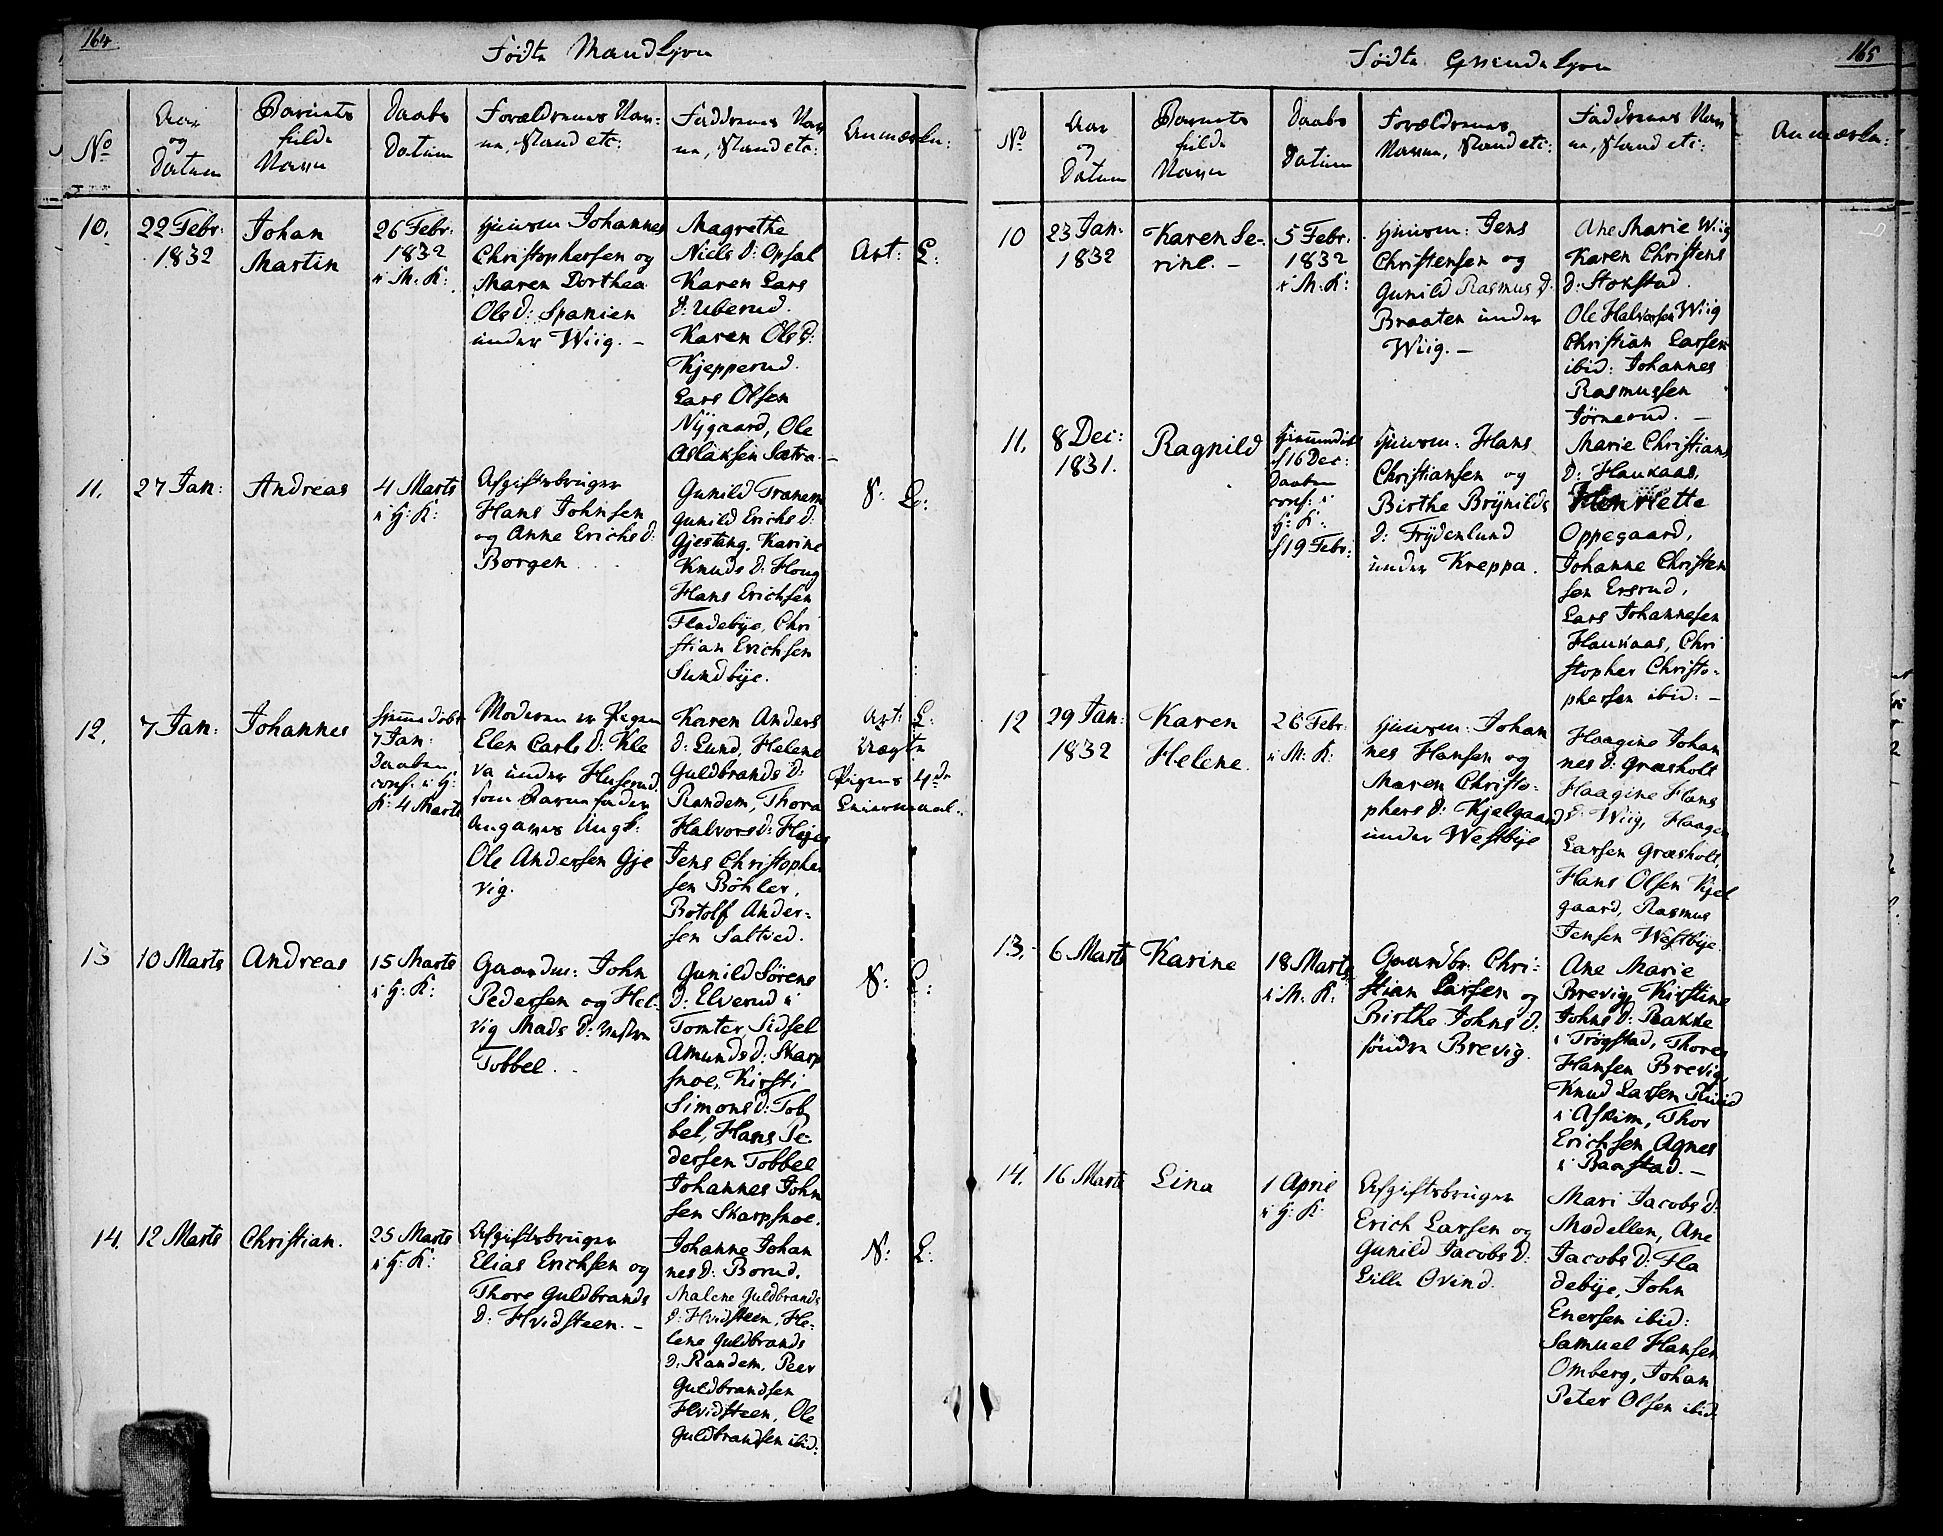 164
Fødte Mandkjøn
No
Aar
og
Datum
Barnets
fulde
Navn
Daabs
Datum
Forældrenes Nav=
ne, Stand etc:
Faddrenes Nav
ne, Stand etc:
Anmærkn:
10.
22 Febr:
1832
Johan
Martin
26 Febr:
1832
i M. K:
Huusm Johannes
Christophersen og
Maren Dorthea
Ols d: Spanien
under Wiig. —
Magrethe
Niels d: Opsal
Karen Lars
d: Uberud.
Karen Ols d:
Kjepperud.
Lars Olsen
Nÿgaard, Ole
Aslaksen Sætra. —
Ant: L:
11.
27 Jan:
Andreas
4 Marts
i H: K:
Afgiftsbruger
Hans Johnsen
og Anne Erichs d:
Borgen
Gunild Tranem
Gunild Erichs d:
Gjestang, Karine
Knuds d: Houg
Hans Erichsen
Fladebÿe, Chri
stian Erichsen
Sundbÿe.
N: L:
12.
7 Jan:
Johannes
hjemmedøbt
7 Jan:
Daaben
conf. i H:
K: 4 Marts
Moderen er Pigen
Elen Carls d: Kle
va under Huserud
som Barnefader
angaves Ungk:
Ole Andersen Gje
vig.
Karen Anders
d: Lund, Helene
Guldbrands d:
Randem, Thora
Halvors d:
Jens Christopher
sen Böhler,
Botolf Ander=
sen Saltved.
Ant: L:
uægte
Pigens 4de
Leiermaal.
13
10 Marts
Andreas
15 Marts
i H: K:
Gaardm: John
Pedersen og Hel=
vig Mads d: vestre
Tobbel.
Gunild Sörens
d: Elverud i
Tomter Sidsel
Amunds d: Skarp
snoe, Kirsti
Simons d: Tob
bel, Hans Pe
dersen Tobbel
Johannes John
sen Skarpsnoe.
N: L:
14.
12 Marts
Christian.
25 Marts
i H: K:
Afgiftsbruger
Elias Erichsen og
Thore Guldbrands
d: Hvidsteen. —
Johanne Johan
nes d: Borud.
Malene Guldbrands
d: Hvidsteen, He=
lene Guldbrands
d: Randem, Peer
Guldbrandsen
Hvidsteen, Ole
Guldbrandsen ibid:
N: L:
165
Fødte Qvindekjøn
No
Aar
og
Datum
Barnets
fulde
Navn
Daabs
Datum
Forældrenes
Navne, Stand etc:
Faddrenes Nav
ne, Stand etc:
Anmærkn:
10
23 Jan:
1832
Karen Se=
rine. —
5 Febr.
1832
i M. K:
Huusm: Jens
Christensen og
Gunild Rasmus d:
Braaten under
Wiig. —
Ane Marie Wiig
Karen Christens
d: Stokstad.
Ole Halvorsen Wiig
Christian Larsen
ibid: Johannes
Rasmussen
Törnerud. —
11.
8 Dec:
1831.
Ragnild
hjemmedöbt
d 16 Dec:
Daaben
conf: i
H: K:
d 19 Febr:
Huusm: Hans
Christiansen og
Birthe Brÿnilds
d: Frÿdenlund
under Kreppa.
Marie Christians
d: Haukaas,
Henriette
Oppegaard,
Johanne Christen
sen Ersrud,
Lars Johannesen
Haukaas, Chri
stopher Christo=
phersen ibid: —
12
29 Jan:
1832
Karen
Helene.
26 Febr:
i M. K:
Huusm: Johan
nes Hansen og
Maren Christo=
phers d: Kjelgaard
under Westbÿe
Haagine Johan
nes d: Græsholt
Haagine Hans
d: Wiig, Haagen
Larsen Græsholt,
Hans Olsen Kjel
gaard, Rasmus
Jensen Westbÿe.
13.
6 Marts
Karine
18 Marts
i M. K:
Gaardbr. Chri=
stian Larsen og
Birthe Johns d.
söndre Brevig.
Ane Marie
Brevig, Kirstine
Johns d: Rakke
i Trögstad, Thores
Hansen Brevig
Knud Larsen Ruud
i Askim, Thor
Erichsen Agnes
i Baastad. —
14.
16 Marts
Lina
1 April
i H: K:
Afgiftsbruger
Erich Larsen og
Gunild Jacobs d:
Lille Ovind.
Mari Jacobs d:
Modellen, Ane
Jacobs d: Fla
debÿe, John
Enersen ibid:
Samuel Hansen
Omberg, Johan
Peter Olsen ibid.